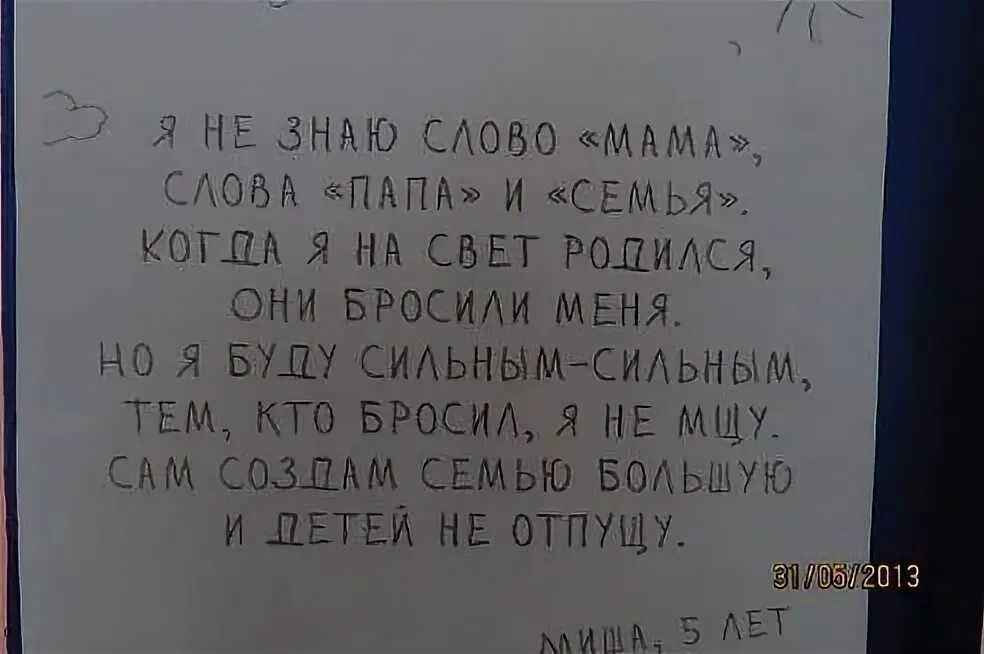 Я НЕ ЗНАЮ СЛОВО «МАМА»,
СЛОВА «ПАПА» И «СЕМЬЯ».
КОГДА Я НА СВЕТ РОДИЛСЯ,
ОНИ БРОСИЛИ МЕНЯ.
НО Я БУДУ СИЛЬНЫМ-СИЛЬНЫМ,
ТЕМ, КТО БРОСИЛ, Я НЕ МЩУ.
САМ СОЗДАМ СЕМЬЮ БОЛЬШУЮ
И ДЕТЕЙ НЕ ОТПУЩУ.
31/05/2013
МИША, 5 ЛЕТ